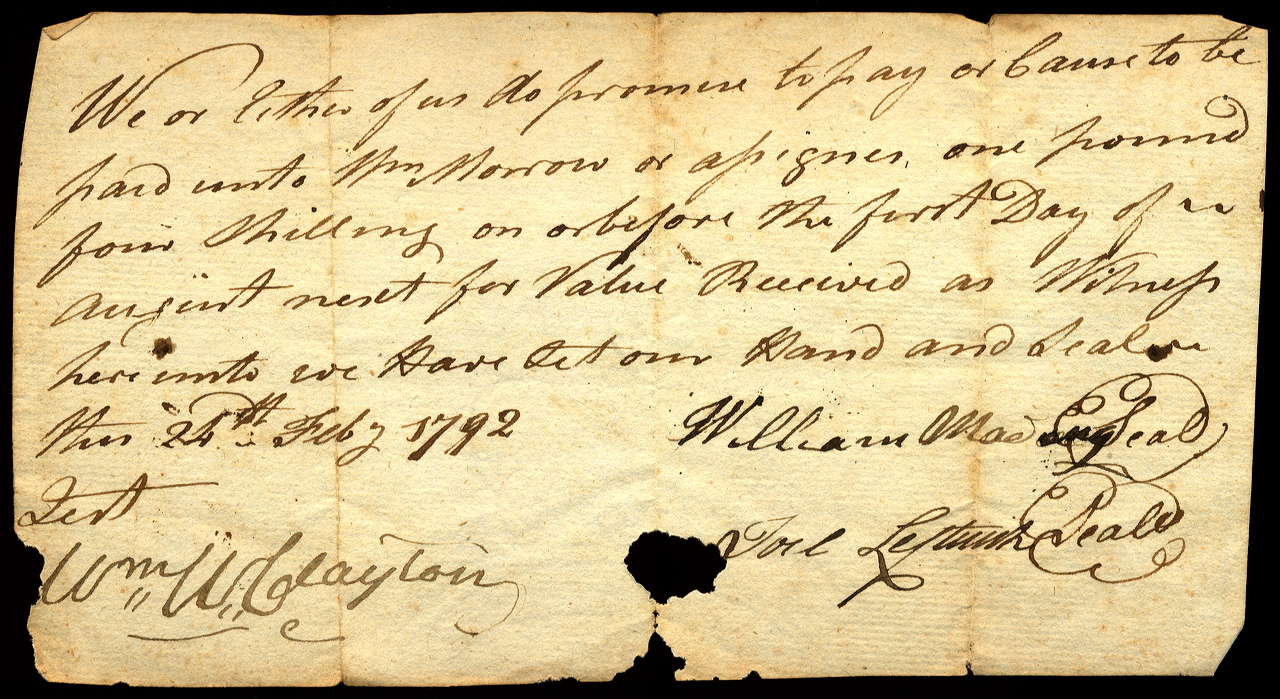 We or Either of us do promise to pay or Cause to be
paid unto Wm Morrow or assignes one pound
four Shilling on or before the first Day of
august next for Value Received as Witness
here unto we Have Set our Hand and Seal
this 24th Feby 1792 William Seal
Test
Joel Seal
Wm W Clayton